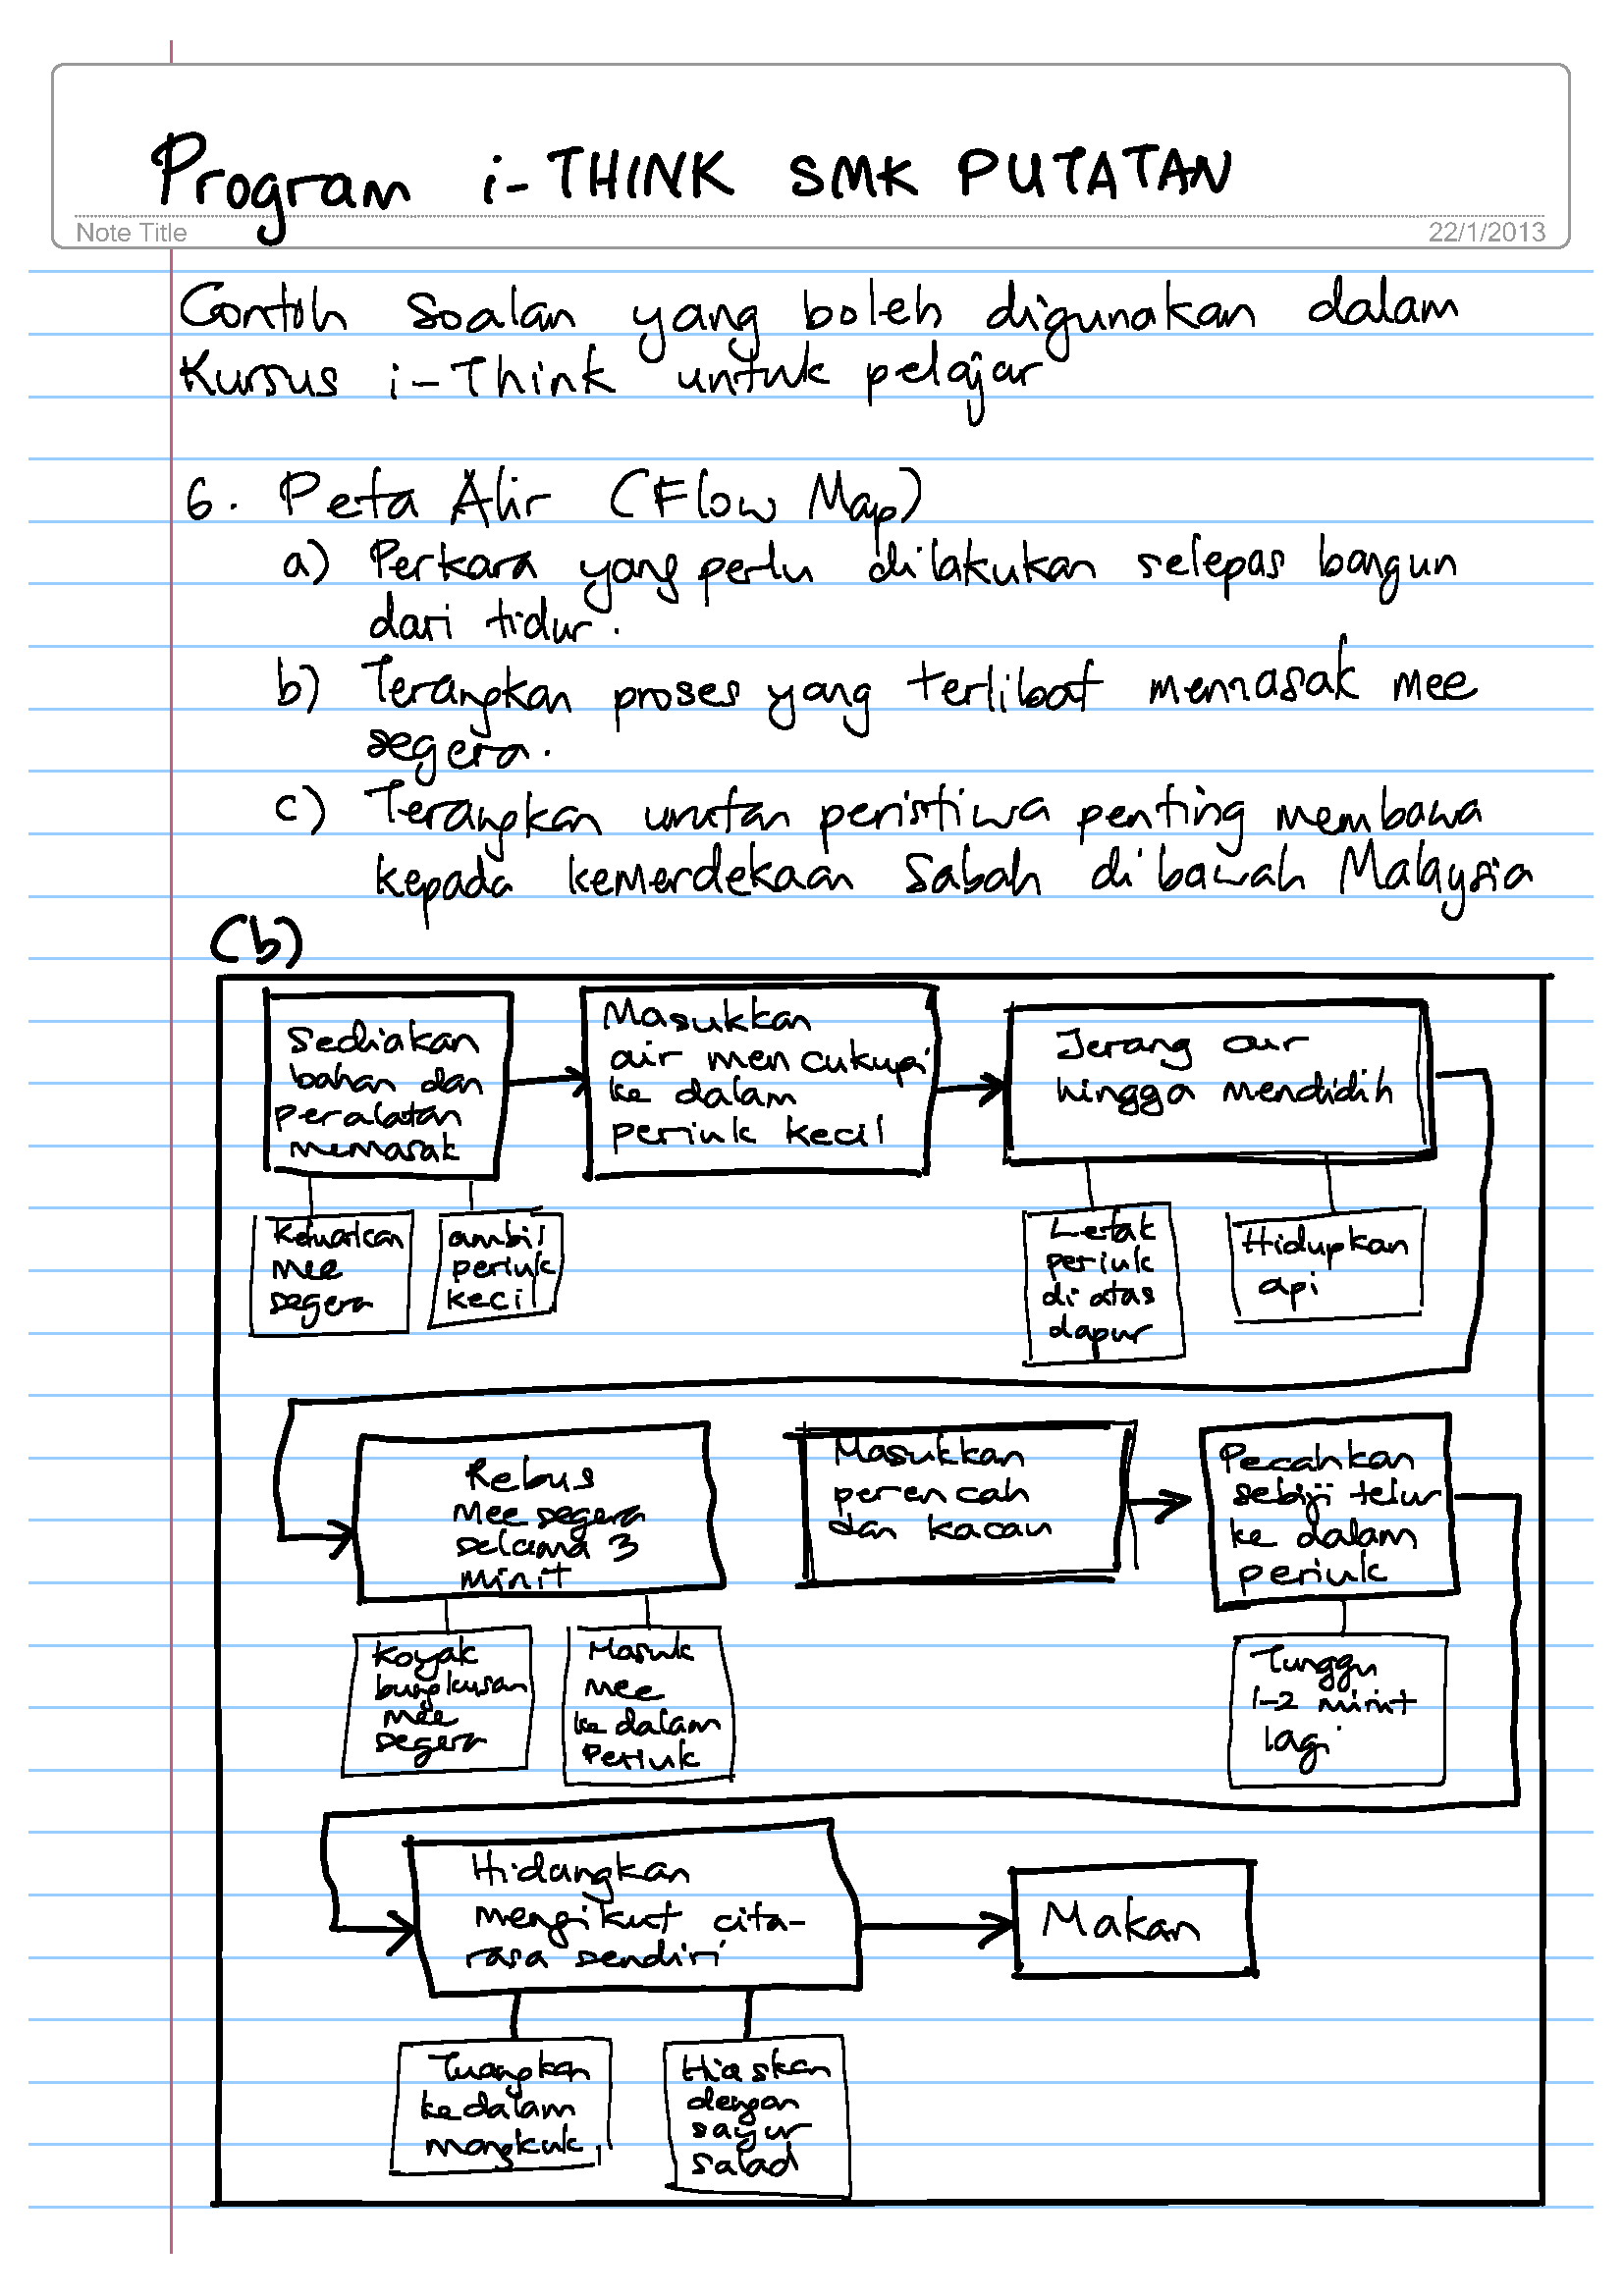 Program i-THINK SMK PUTATAN
Note Title
22/1/2013
Contoh Soalan yang boleh digunakan dalam
Kursus i-Think untuk pelajar
6. Peta Alir (Flow Map)
a) Perkara yang perlu dilakukan selepas bangun
dari tidur.
b) Terangkan proses yang terlibat memasak mee
segera.
c) Terangkan urutan peristiwa penting membawa
kepada kemerdekaan Sabah di bawah Malaysia
(b)
Sediakan
bahan dan
peralatan
memasak
Masukkan
air mencukupi
ke dalam
periuk kecil
Jerang air
hingga mendidih
Keluarkan
mee
segera
ambil
periuk
kecil
Letak
periuk
di atas
dapur
Hidupkan
api
Rebus
Mee segera
selama 3
minit
Masukkan
perencah
dan kacau
Pecahkan
sebiji telur
ke dalam
periuk
Koyak
bungkusan
mee
segera
Masuk
mee
ke dalam
Periuk
Tunggu
1-2 minit
lagi
Hidangkan
mengikut cita-
rasa sendiri
Makan
Tuangkan
kedalam
mangkuk.
Hiaskan
dengan
sayur
salad